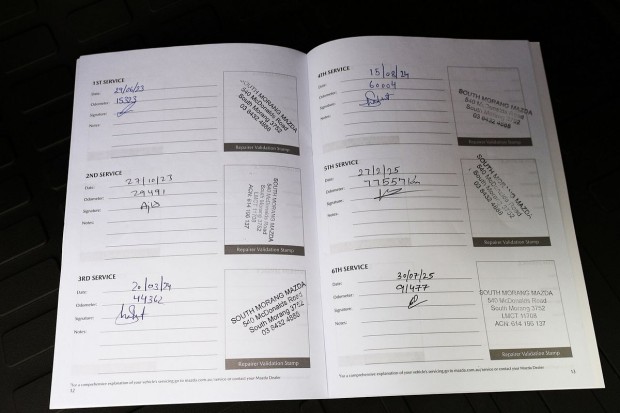 1ST SERVICE
Date: 29/06/23
Odometer: 15323
Signature:
Notes:
SOUTH MORANG MAZDA
540 McDonalds Road
South Morang 3752
03 8432 4888
Repairer Validation Stamp
2ND SERVICE
Date: 27/10/23
Odometer: 29491
Signature:
Notes:
SOUTH MORANG MAZDA
540 McDonalds Road
South Morang 3752
LMCT 11708
ACN: 614 195 137
Repairer Validation Stamp
3RD SERVICE
Date: 20/03/24
Odometer: 44362
Signature:
Notes:
SOUTH MORANG MAZDA
540 McDonalds Road
South Morang 3752
03 8432 4888
Repairer Validation Stamp
*For a comprehensive explanation of your vehicle's servicing go to mazda.com.au/service or contact your Mazda Dealer.
12
4TH SERVICE
Date: 15/08/24
Odometer: 60004
Signature:
Notes:
SOUTH MORANG MAZDA
540 McDonalds Road
South Morang 3752
03 8432 4888
Repairer Validation Stamp
5TH SERVICE
Date: 27/2/25
Odometer: 77557km
Signature:
Notes:
SOUTH MORANG MAZDA
540 McDonalds Road
South Morang 3752
03 8432 4888
Repairer Validation Stamp
6TH SERVICE
Date: 30/07/25
Odometer: 91477
Signature:
Notes:
SOUTH MORANG MAZDA
540 McDonalds Road
South Morang 3752
LMCT 11708
ACN: 614 195 137
Repairer Validation Stamp
*For a comprehensive explanation of your vehicle's servicing go to mazda.com.au/service or contact your Mazda Dealer.
13